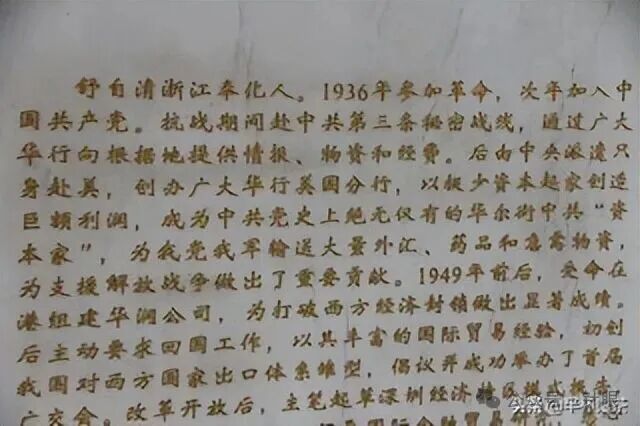 舒自清浙江奉化人。1936年参加革命，次年加入中
国共产党。抗战期间赴中共第三条秘密战线，通过广大
华行向根据地提供情报、物资和经费。后由中央派遣只
身赴美，创办广大华行美国分行，以极少资本起家创造
巨额利润，成为中共党史上绝无仅有的华尔街中共“资
本家”，为我党我军输送大量外汇、药品和急需物资，
为支援解放战争做出了重要贡献。1949年前后，受命在
港组建华润公司，为打破西方经济封锁做出显著成绩。
后主动要求回国工作，以其丰富的国际贸易经验，初创
我国对西方国家出口体系雏型，倡议并成功举办了首届
广交会。改革开放后，主笔起草深圳经济特区模式报告
国际金融贸易